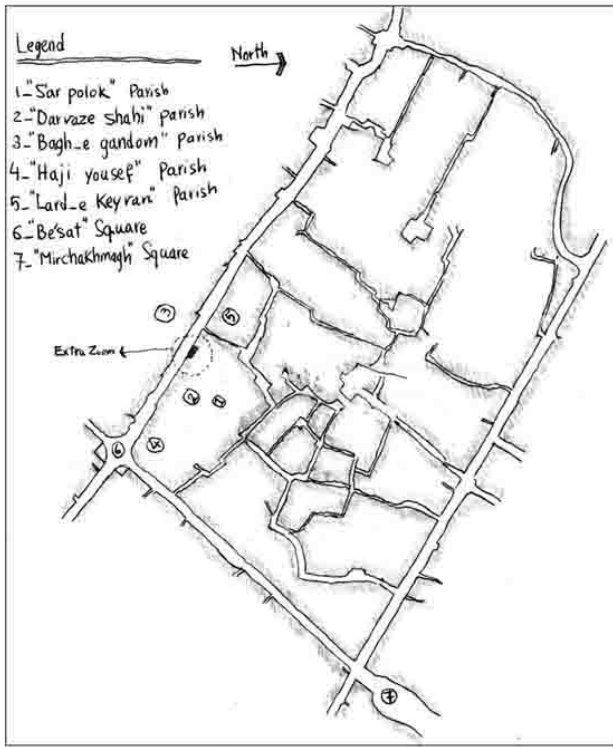 Legend
North
1_"Sar polok" Parish
2_"Darvaze shahi" parish
3_"Bagh_e gandom" parish
4_"Haji yousef" Parish
5_"Lard_e Keyvan" Parish
6_"Be'sat" Square
7_"Mirchakhmagh" Square
3
5
Extra Zoom
2
1
6
4
7